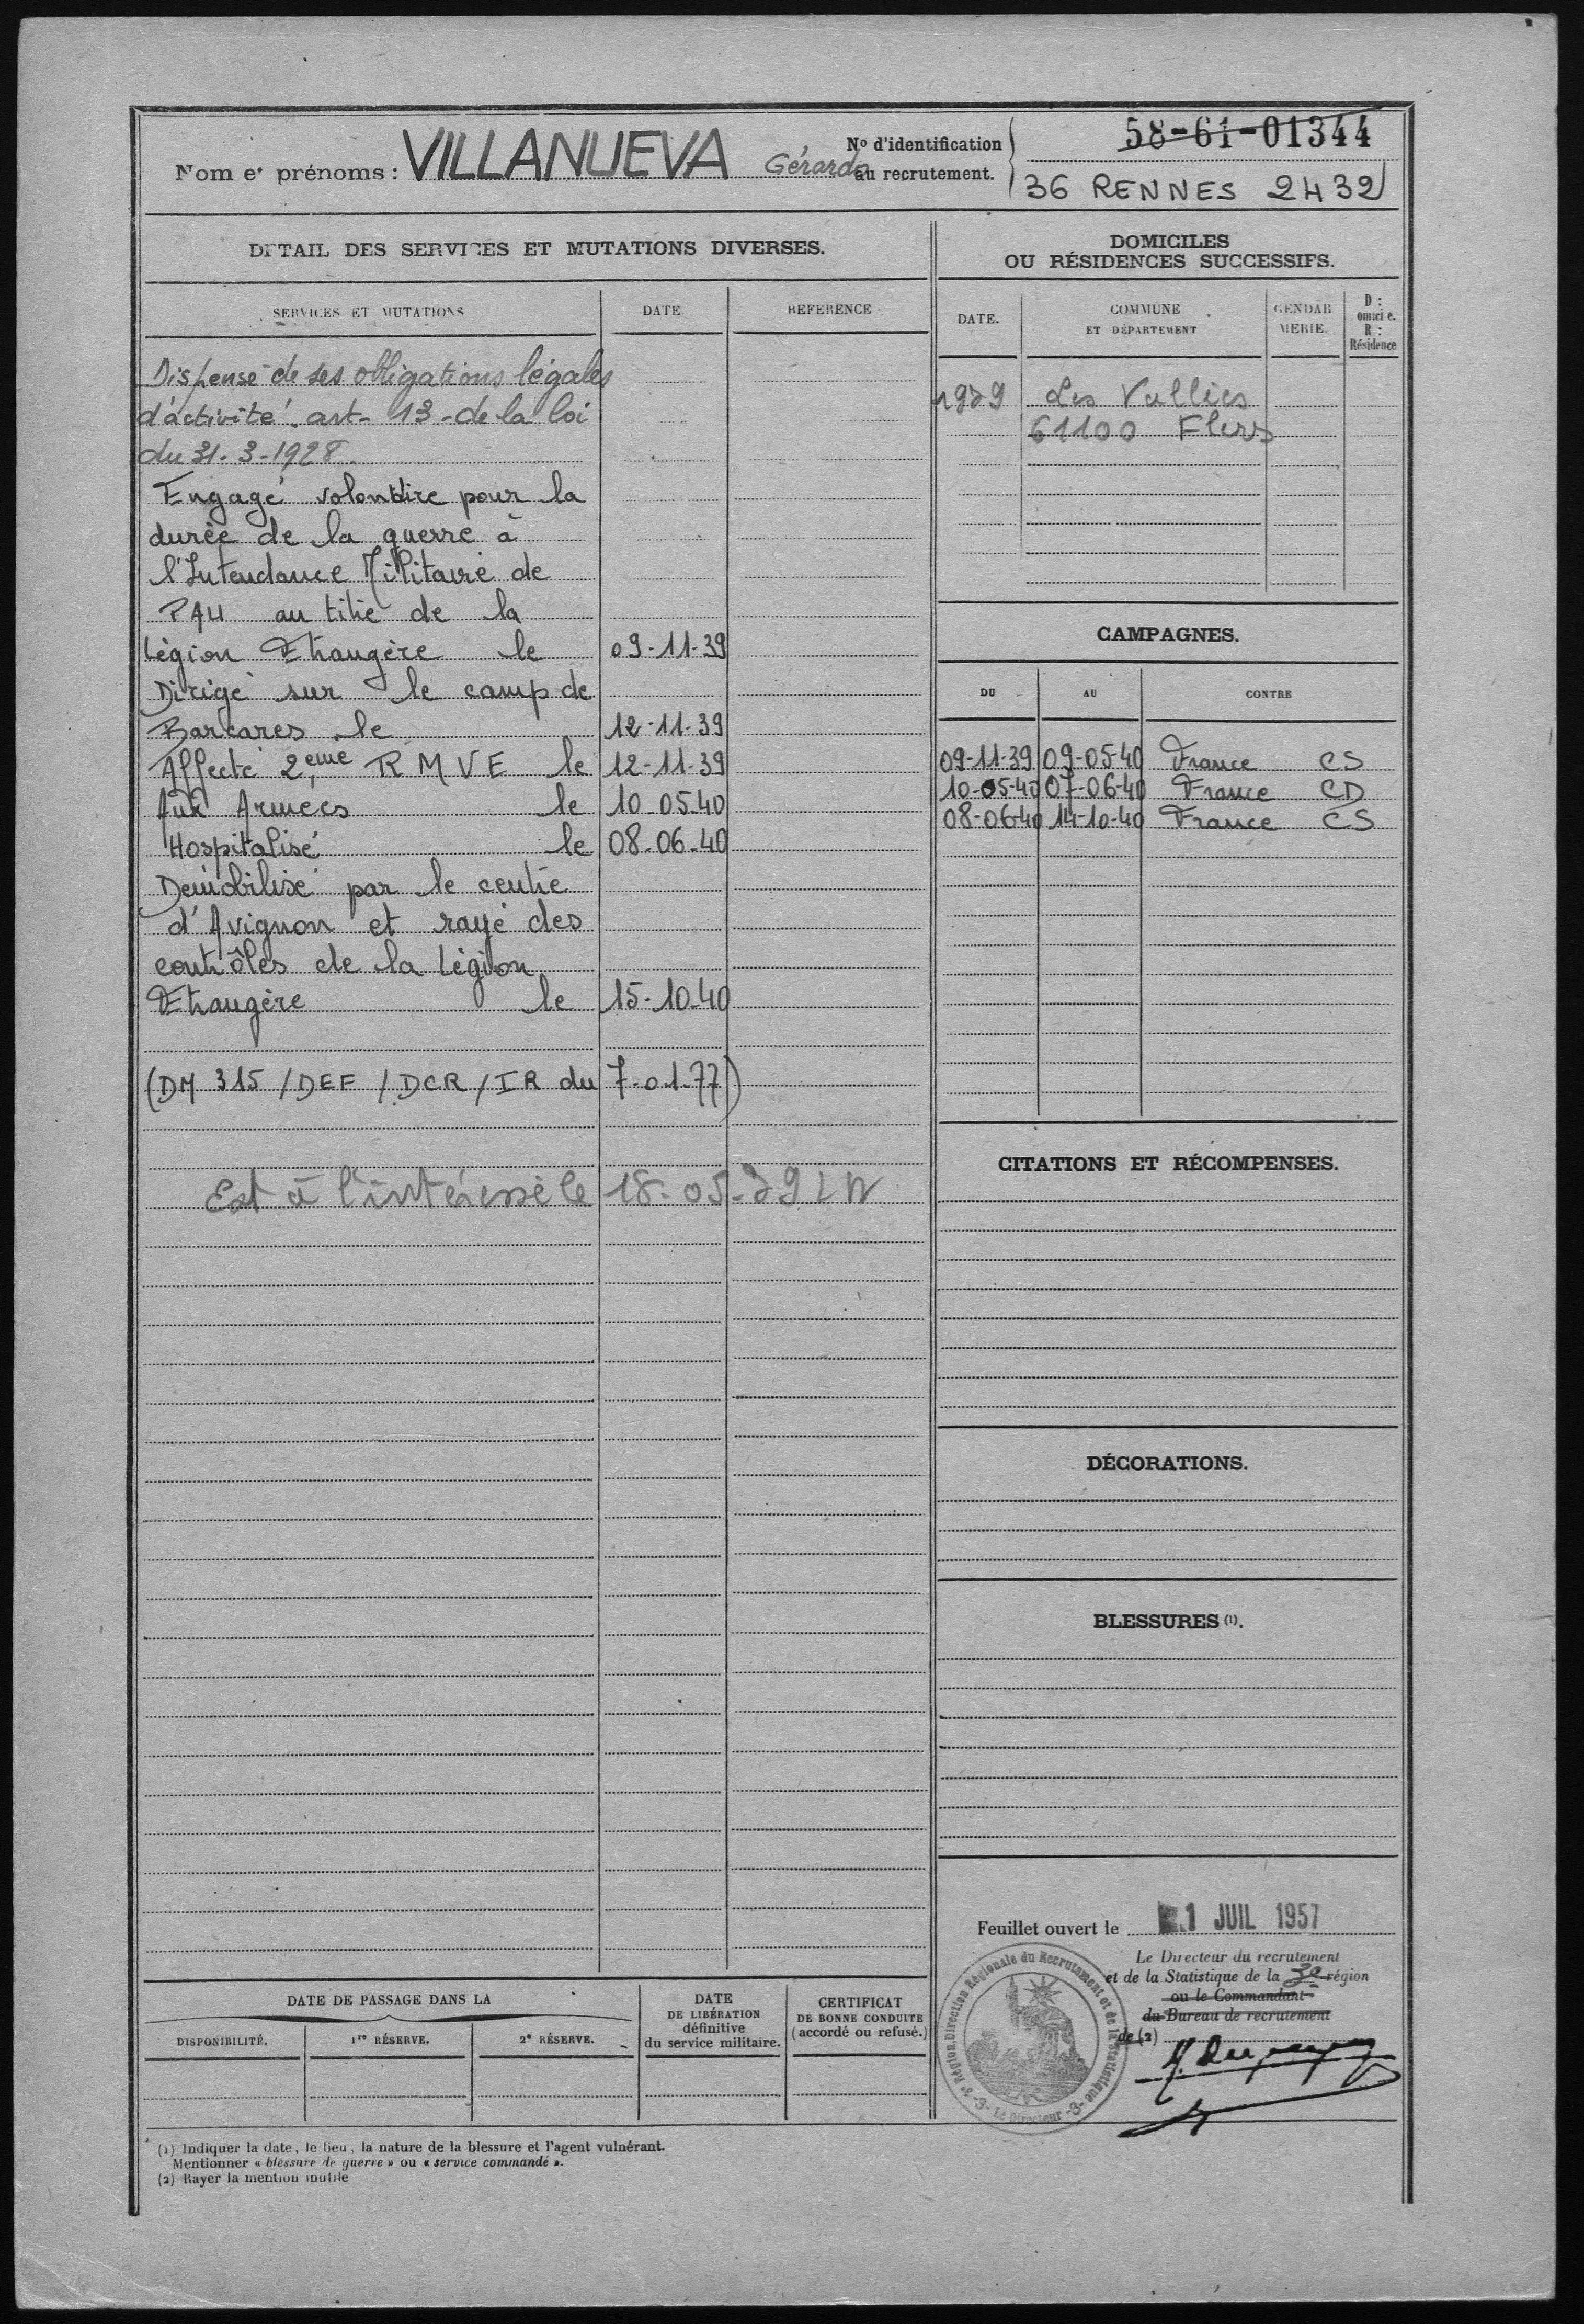 Nom et prénoms : VILLANUEVA Gérardo
No d'identification au recrutement.
58-61-01344
36 RENNES 2432
DETAIL DES SERVICES ET MUTATIONS DIVERSES.
SERVICES ET MUTATIONS DATE. REFERENCE
Dispensé de ses obligations légales
d'activité. art- 13 - de la loi
du 31-3-1928.
Engagé volontaire pour la
durée de la guerre à
l'Intendance Militaire de
PAU au titre de la
Légion Etrangère le 09-11-39
Dirigé sur le camp de
Barcares le 12-11-39
Affecté 2eme RMVE le 12-11-39
Aux Armées le 10-05-40
Hospitalisé le 08-06-40
Démobilisé par le centre
d'Avignon et rayé des
contrôles de la Légion
Etrangère le 15-10-40
(DM 315 /DEF / DCR / IR du 7-01-77)
à l'intéressé le 18-05-79
DATE DE PASSAGE DANS LA
DISPONIBILITÉ. 1re RÉSERVE. 2e RÉSERVE.
DATE
DE LIBÉRATION
définitive
du service militaire.
CERTIFICAT
DE BONNE CONDUITE
(accordé ou refusé.)
DOMICILES
OU RÉSIDENCES SUCCESSIFS.
DATE. COMMUNE ET DÉPARTEMENT GENDARMERIE. D : omicie. R : Résidence
1979 Les Vallées
61100 Flers
CAMPAGNES.
DU AU CONTRE
09-11-39 09-05-40 France CS
10-05-40 07-06-40 France CD
08-06-40 14-10-40 France CS
CITATIONS ET RÉCOMPENSES.
DÉCORATIONS.
BLESSURES (1).
Feuillet ouvert le 1 JUIL 1957
Le Directeur du recrutement
et de la Statistique de la 3e région
ou le Commandant
du Bureau de recrutement
de (2)
3e Région Direction Régionale du Recrutement et de la Statistique -3- Le Directeur -3-
(1) Indiquer la date, le lieu, la nature de la blessure et l'agent vulnérant.
Mentionner « blessure de guerre » ou « service commandé ».
(2) Rayer la mention inutile